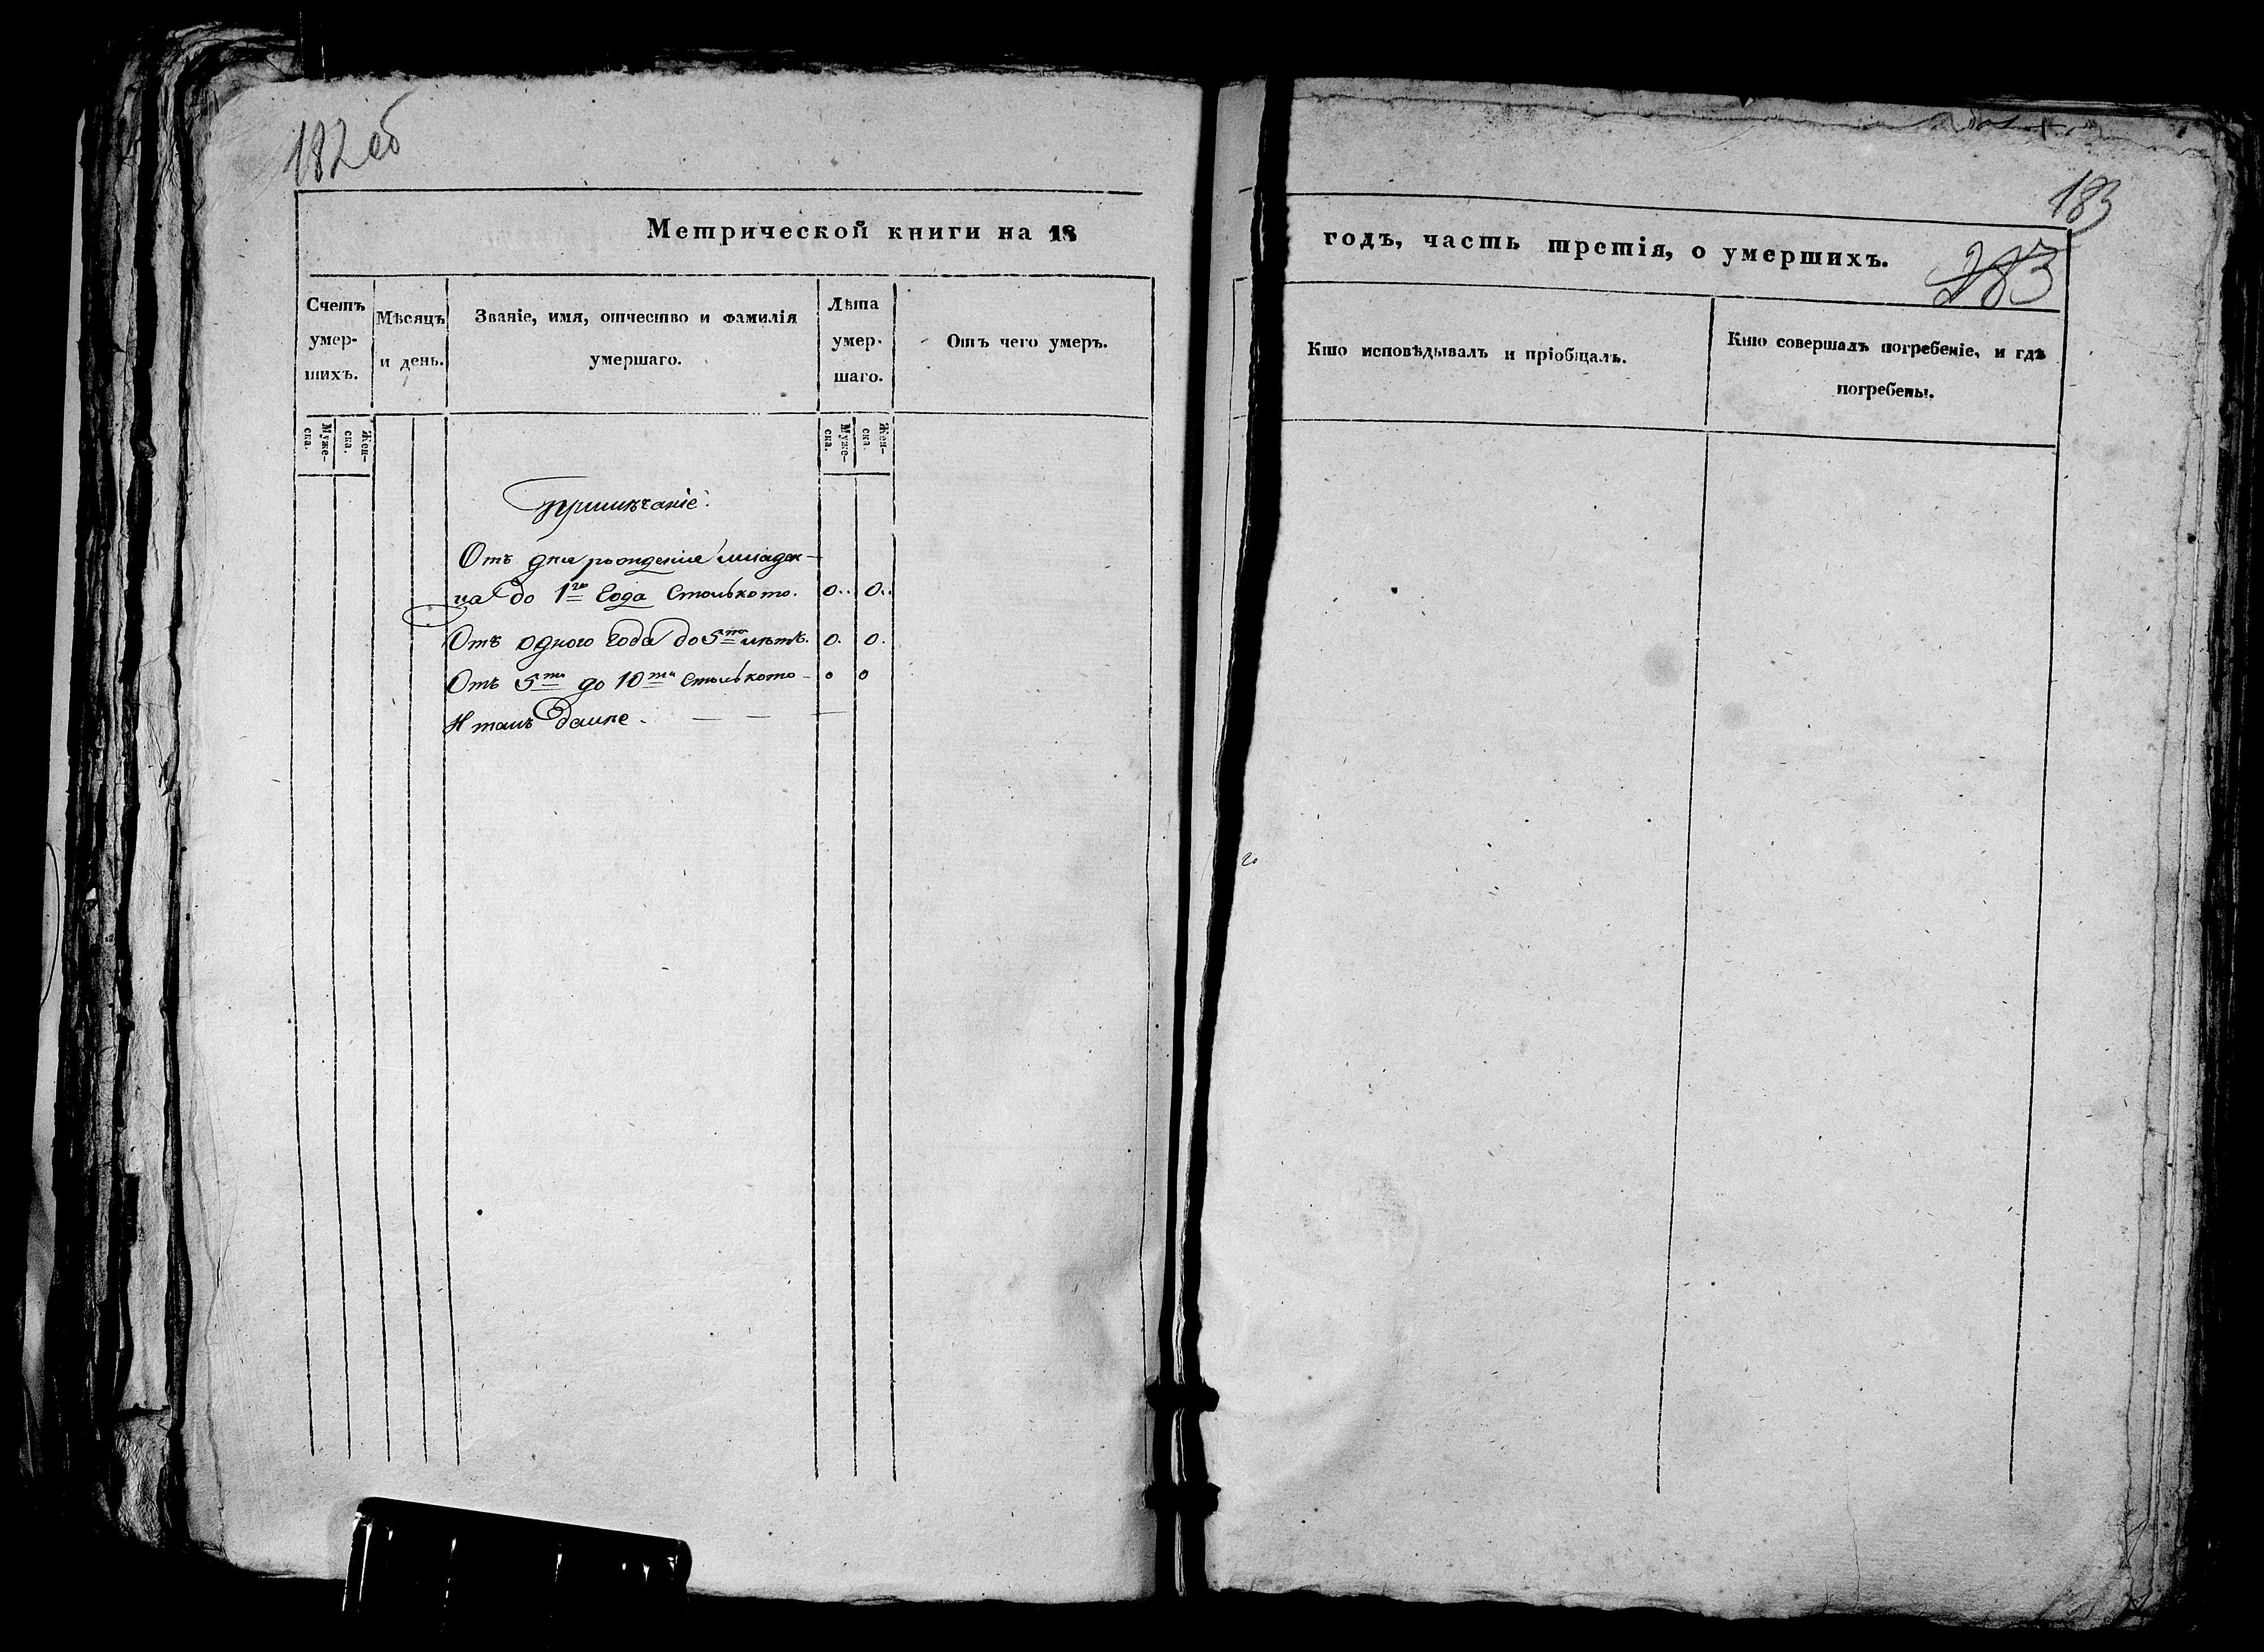 182 об
183
Метрической книги на 18
годъ, часть третія, о умершихъ.
283
Счетъ
умер-
шихъ.
Мѣсяцъ
и день.
Званіе, имя, отчество и фамилія
умершаго.
Лѣта
умер-
шаго.
Отъ чего умеръ.
Кто исповѣдывалъ и пріобщалъ.
Кто совершалъ погребеніе, и гдѣ
погребены.
Муже-
ска.
Жен-
ска.
Муже-
ска.
Жен-
ска.
Примѣчаніе.
Отъ дни рожденія младен-
ца до 1го Года Столькото. 0.. 0..
Отъ одного года до 5ти лѣтъ. 0. 0.
Отъ 5ти до 10ти Столькото - 0 0
И такъ далѣе. — — —
го